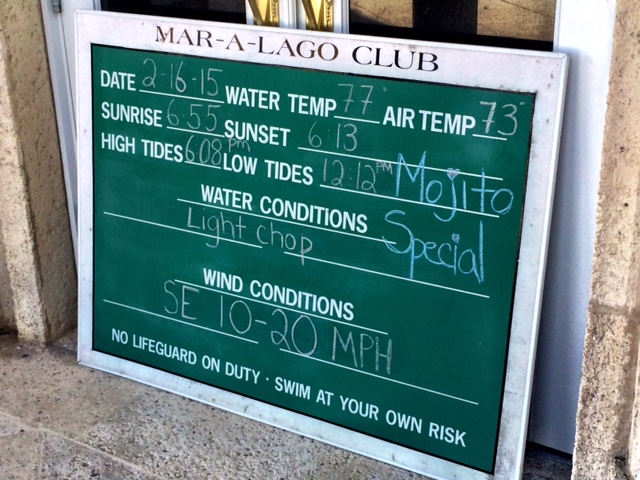 MAR-A-LAGO CLUB
DATE 2-16-15 WATER TEMP 77° AIR TEMP 73°
SUNRISE 6:55 SUNSET 6:13
HIGH TIDES 6:08 PM LOW TIDES 12:12 PM
Mojito
Special
WATER CONDITIONS
Light chop
WIND CONDITIONS
SE 10-20 MPH
NO LIFEGUARD ON DUTY · SWIM AT YOUR OWN RISK